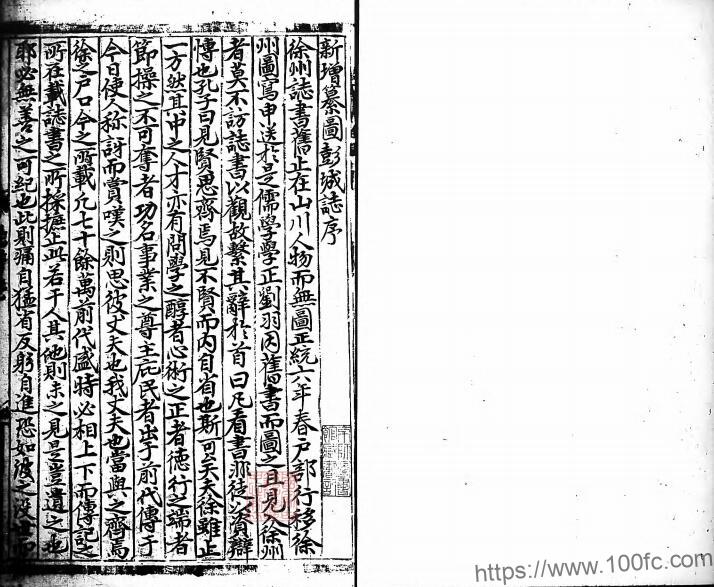 新增纂圖彭城誌序
徐州誌書舊止在山川人物而無圖正統六年春戶部行移徐
州圖寫申送於是儒學學正劉羽因舊書而圖之且見徐州
者莫不訪誌書以觀故繫其辭於首曰凡看書非徒以資辯
博也孔子曰見賢思齊焉見不賢而內自省也斯可矣夫徐雖止
一方然其中之人才亦有問學之醇者心術之正者德行之端者
節操之不可奪者功名事業之尊主庇民者出于前代傳于
今日使人稱訝而賞嘆之則思彼丈夫也我丈夫也當與之齊焉
徐之戶口今之所載凡七十餘萬前代盛時必相上下而傳記之
所在載誌書之所採摭止此若干人其他則未之見是豈遺之也
耶必無善之可紀也此則痛自猛省反躬自進恐如彼之沒世而
https://www.100fc.com